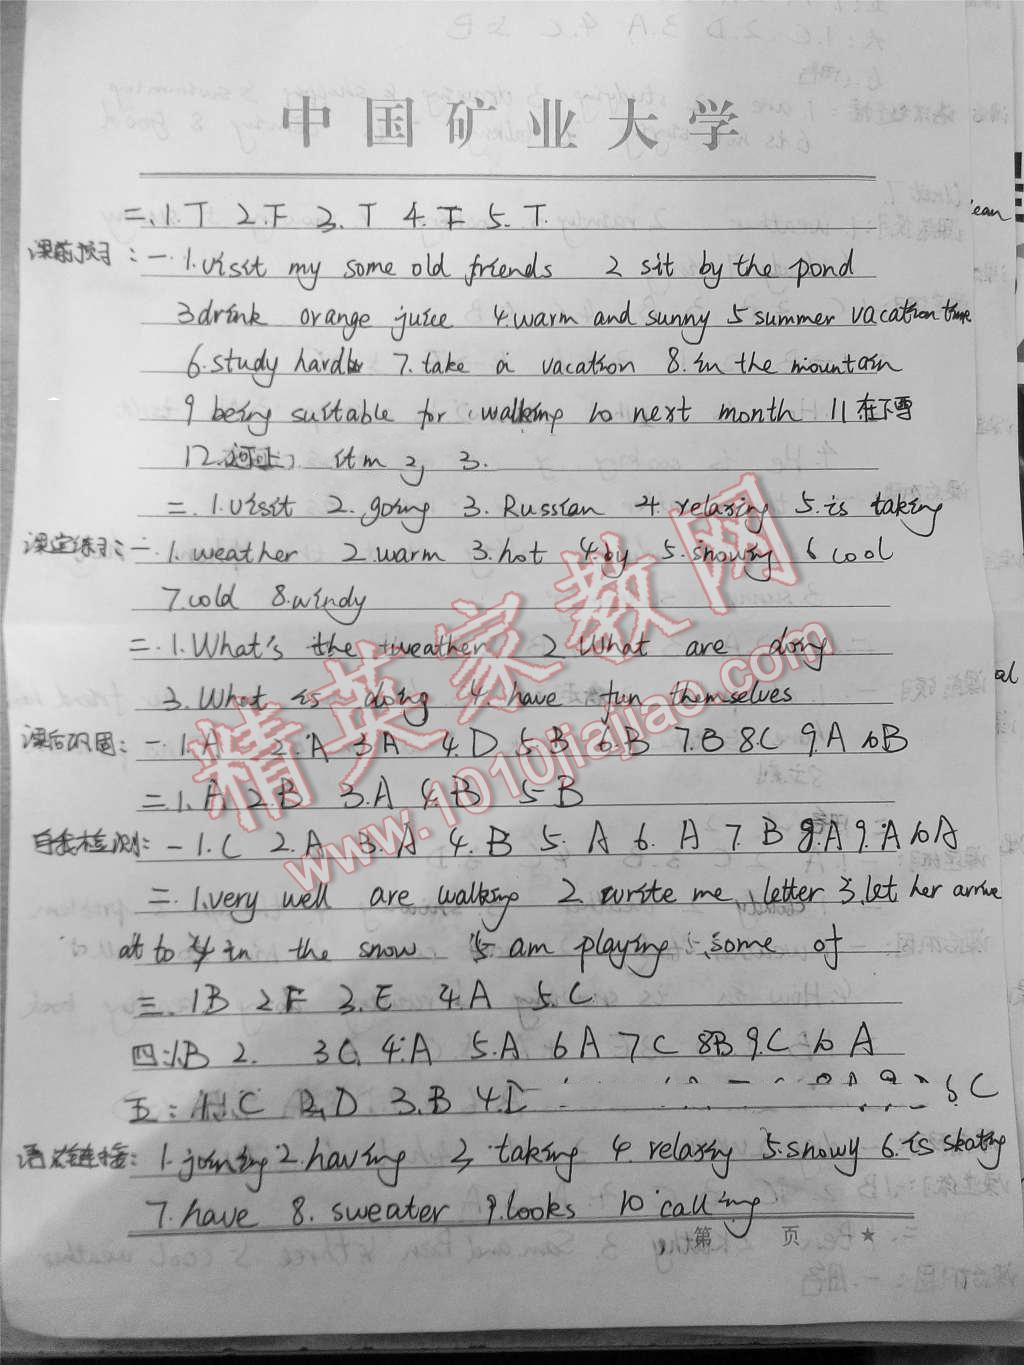 中国矿业大学
二.1.T 2.F 3.T 4.F 5.T.
课前预习:一.1.visit my some old friends 2 sit by the pond
3 drink orange juice 4.warm and sunny 5 summer vacation time
6.study hard 7.take a vacation 8.in the mountain
9 being suitable for walking 10 next month 11 在下雪
12. it m 2, 3.
二.1.visit 2.going 3.Russian 4.relaxing 5.is taking
课堂练习:一.1.weather 2.warm 3.hot 4.by 5.snowing 6 cool
7.cold 8.windy
二.1.What's the weather 2 What are doing
3.What is doing 4.have fun themselves
课后巩固:一.1.A 2.A 3 A 4.D 5.B 6.B 7.B 8.C 9.A 10B
二.1.A 2.B 3.A 4.B 5B
自我检测:一1.C 2.A 3.A 4.B 5.A 6.A 7 B 8.A 9.A 10A
二.1.very well are walking 2.write me letter 3.let her arrive
at to 4 in the snow 5 am playing 5.some of
三.1B 2F 3.E 4.A 5.C.
四:1.B 2. 3C. 4.A 5.A 6A 7C 8B 9.C 10 A
五:1.C 2.D 3.B 4. 5 C
语法链接:1.joining 2.having 3.taking 4.relaxing 5.snowy 6.is skating
7.have 8.sweater 9.looks 10 calling
第 页 ★
精英家教网
www.1010jiajiao.com